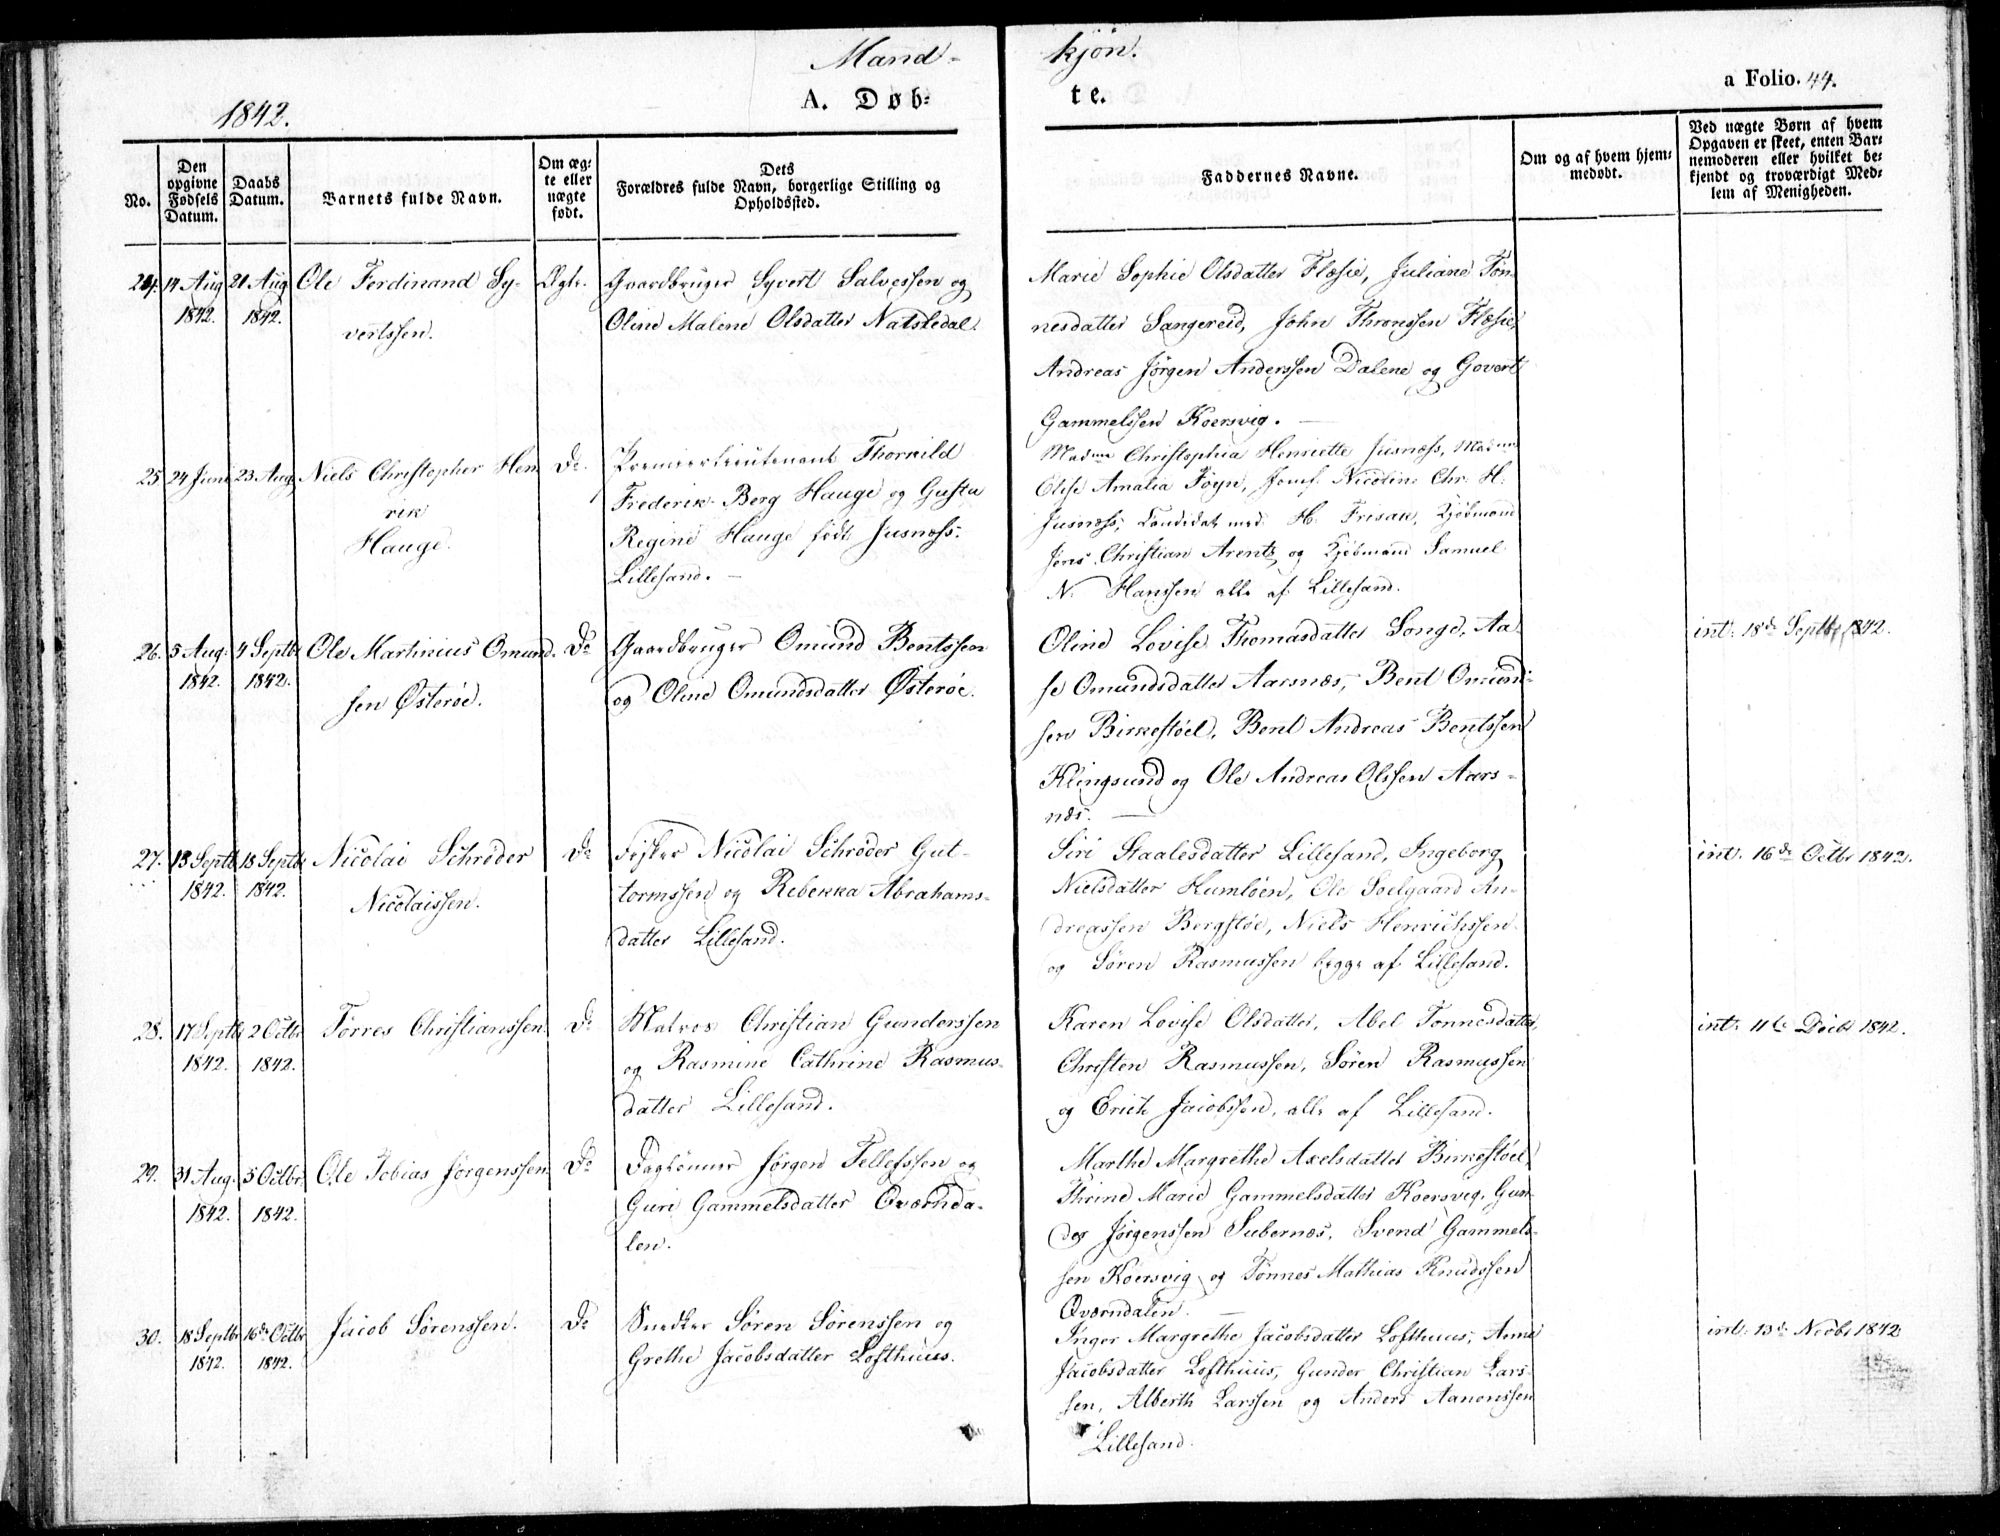 Mand-
kjøn.
1842.
A. Døb-
te.
a Folio. 44.
No.
Den opgivne Fødsels Datum.
Daabs Datum.
Barnets fulde Navn.
Om æg-te eller nægte født.
Dets Forældres fulde Navn, borgerlige Stilling og Opholdssted.
Faddernes Navne.
Om og af hvem hjem-medøbt.
Ved nægte Børn af hvem Opgaven er skeet, enten Bar-nemoderen eller hvilket be-kjendt og troværdigt Med-lem af Menigheden.
24. 14 Aug 1842. 21 Aug 1842. Ole Ferdinand Sy-
vertssen.
Ægte.
Gaardbruger Syvert Salvessen og
Oline Malene Olsdatter Natskedal.
Marie Sophie Olsdatter Flæsie, Juliane Tøn-
nesdatter Sangereid, John Thronssen Flæsie,
Andreas Jørgen Anderssen Dalene og Govert
Gammelssen Koersvig.
25 24 Juni 23 Aug Niels Christopher Hen
rik
Hauge.
Do.
Premierlieutenant Thorkild
Frederik Berg Hauge og Gusta
Regine Hauge født Jusnæss.
Lillesand.
Madme Christophia Henriette Jusnæss, Madme
Olise Amalia Føyn, Jomf. Nicoline Chr. H.
Jusnæss, Candidat med. H. Frisak, Kjøbmand
Jens Christian Arentz og Kjøbmand Samuel
N. Hanssen alle af Lillesand.
26. 5 Aug. 1842. 4 Septbr 1842. Ole Martinius Omund-
sen Østerøe.
Do
Gaardbruger Omund Bentssen
og Oline Omundsdatter Østerøe.
Oline Lovise Thomasdatter Songe, Aa-
se Omundsdatter Aarsnæs, Bent Omund-
sen Birkestøel, Bent Andreas Bentssen
Klingsund og Ole Andreas Olssen Aars-
næs.
int. 18de Septbr 1842.
27. 13 Septb 1842. 18 Septbr 1842. Nicolai Schrøder
Nicolaissen.
Do
Fisker Nicolai Schrøder Gut-
tormssen og Rebekka Abrahams-
datter Lillesand.
Siri Staalesdatter Lillesand, Ingeborg
Nielsdatter Humløen, Ole Soelgaard An-
dreassen Bergstøe, Niels Henrichssen
og Søren Rasmussen begge af Lillesand.
int. 16de Octbr 1842.
28. 17 Septb 1842. 2 Octbr 1842. Torres Christianssen.
Do
Matros Christian Gunderssen
og Rasmine Cathrine Rasmus-
datter Lillesand.
Karen Lovise Olsdatter, Abel Tonnesdatter,
Christen Rasmussen, Søren Rasmussen
og Erich Jacobssen, alle af Lillesand.
int. 11te Decbr 1842.
29. 31 Aug. 1842. 5 Octbr. 1842. Ole Tobias Jørgenssen
Do
Daglønner Jørgen Tellefssen og
Guri Gammelsdatter Qværnda-
len.
Marthe Margrethe Axelsdatter Birkestøel,
Thrine Marie Gammelsdatter Koersvig, Gun-
der Jørgenssen Tubernæs, Svend Gammels-
sen Koersvig og Tønnes Mathias Knudssen
Qværndalen.
30. 18 Septbr 1842. 16de Octbr 1842. Jacob Sørenssen.
Do
Snedker Søren Sørenssen og
Grethe Jacobsdatter Lofthuus.
Inger Margrethe Jacobsdatter Lofthuus, Anne
Jacobsdatter Lofthuus, Gunder Christian Lars-
sen, Alberth Larssen og Anders Aanonssen
Lillesand.
int. 13de Novbr 1842